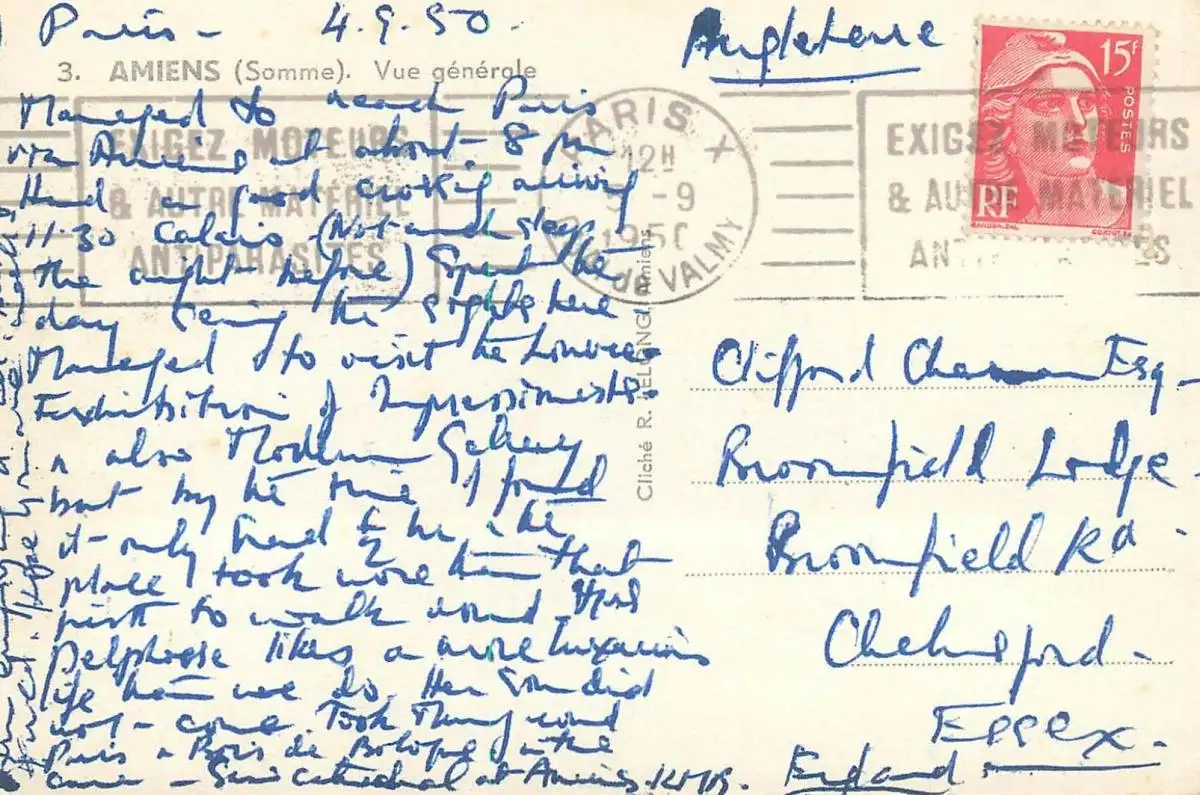 Paris - 4.9.50.
3. AMIENS (Somme). Vue générale
Managed to reach Paris
via Amiens at about 8 pm
Had a good crossing arriving
11.30 Calais (Not much sleep
the night before) Spent the
day seeing the sights here
Managed to visit the Louvre
Exhibition of Impressionists
& also Modern Gallery
but by the time I found
it only had to the
place took more than that
just to walk round
Delphose likes a more luxurious
life than we do. Her son did
not come Took round
Paris & Bois de Bologne in the
Seine cathedral at Amiens.
Angleterre
15F
POSTES
RF
GANDON.DEL
PARIS X
12H
-9
1950
de VALMY
EXIGEZ MOTEURS
& AUTRE MATERIEL
ANTIPARASITES
EXIGEZ MOTEURS
& AUTRE MATERIEL
Cliché R. LELONG, Amiens
Clifford Esq -
Broomfield Lodge
Broomfield Rd.
Chelmsford -
Essex.
England.